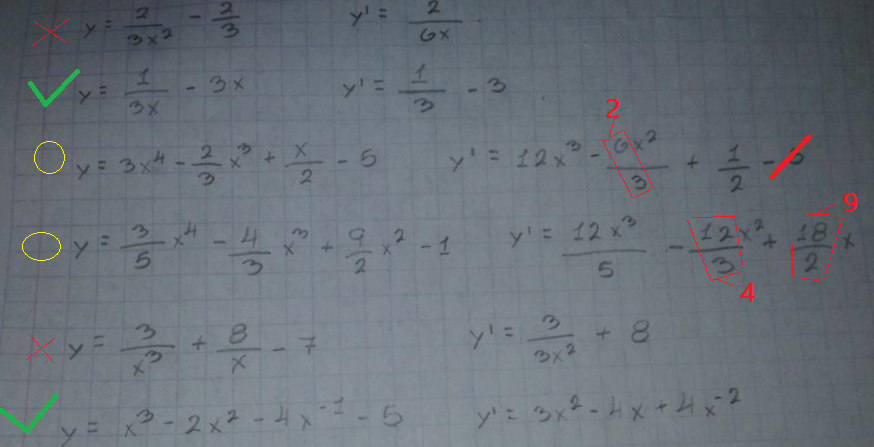 y = 2/3x² - 2/3 y' = 2/6x
y = 1/3x - 3x y' = 1/3 - 3
2
y = 3x⁴ - 2/3 x³ + x/2 - 5 y' = 12x³ - 6x²/3 + 1/2 - 5
9
y = 3/5 x⁴ - 4/3 x³ + 9/2 x² - 1 y' = 12x³/5 - 12/3 x² + 18/2 x
4
y = 3/x³ + 8/x - 7 y' = 3/3x² + 8
y = x³ - 2x² - 4x⁻¹ - 5 y' = 3x² - 4x + 4x⁻²